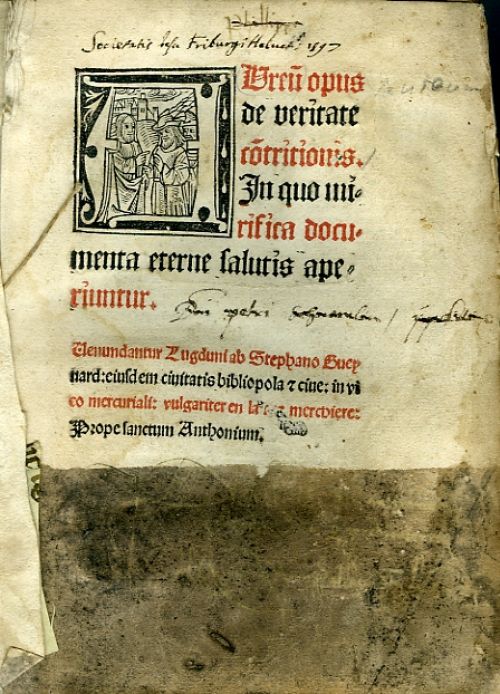 Societatis Jesu Friburgi Heluet. 1597
Aureū opus
de veritate
cōtritionis.
In quo mi-
rifica docu-
menta eterne salutis ape-
riuntur.
petri
Uenundantur Lugduni ab Stephano Guey
nard: eiusdem ciuitatis bibliopola ⁊ ciue: in vi
co mercuriali: vulgariter en la rue merchiere:
Prope sanctum Anthonium.